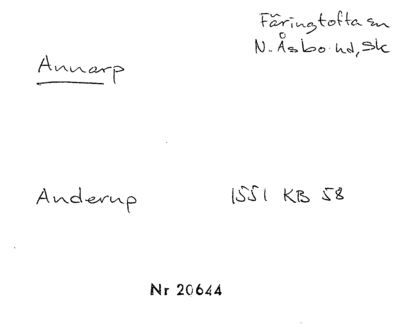 Färingtofta sn
N. Åsbo hd, Sk
Annarp
Anderup 1551 KB 58
Nr 20644